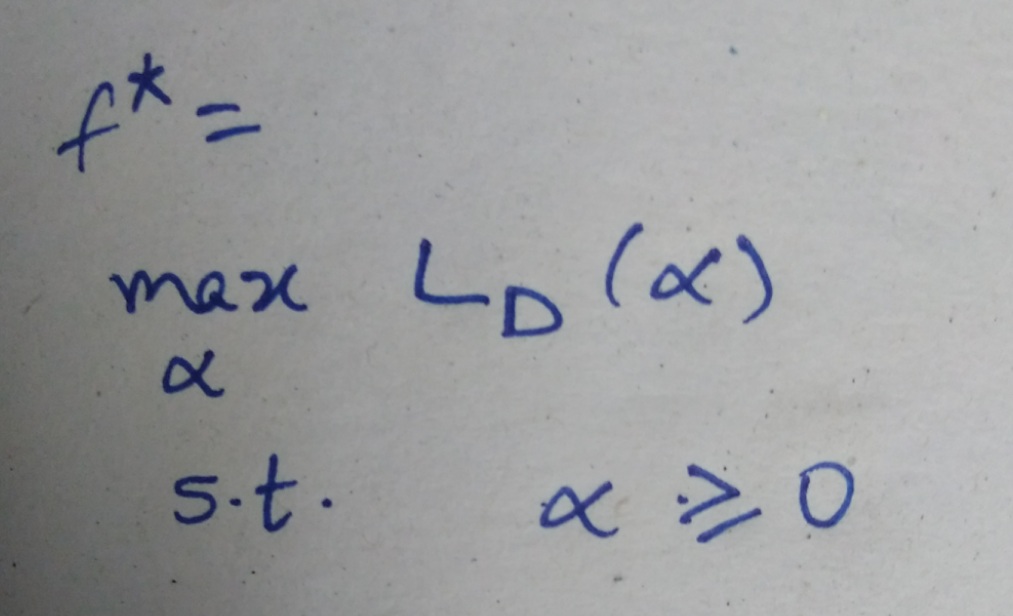 f* =
max L_D (α)
α
s.t. α ⩾ 0